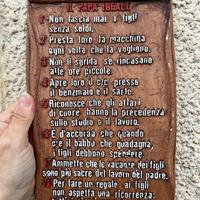 IL PAPÀ IDEALE
1° Non lascia mai i figli
senza soldi.
2° Presta loro la macchina
ogni volta che la vogliono.
3° Non li sgrida se rincasano
alle ore piccole.
4° Apre loro il c/c presso
il benzinaio e il sarto.
5° Riconosce che gli affari
di cuore hanno la precedenza
sullo studio o il lavoro.
6° È d'accordo che quando
c'è il babbo che guadagna,
i figli debbono spendere.
Ammette che le vacanze dei figli
sono più sacre del lavoro del padre.
Per fare un regalo, ai figli
non aspetta una ricorrenza: